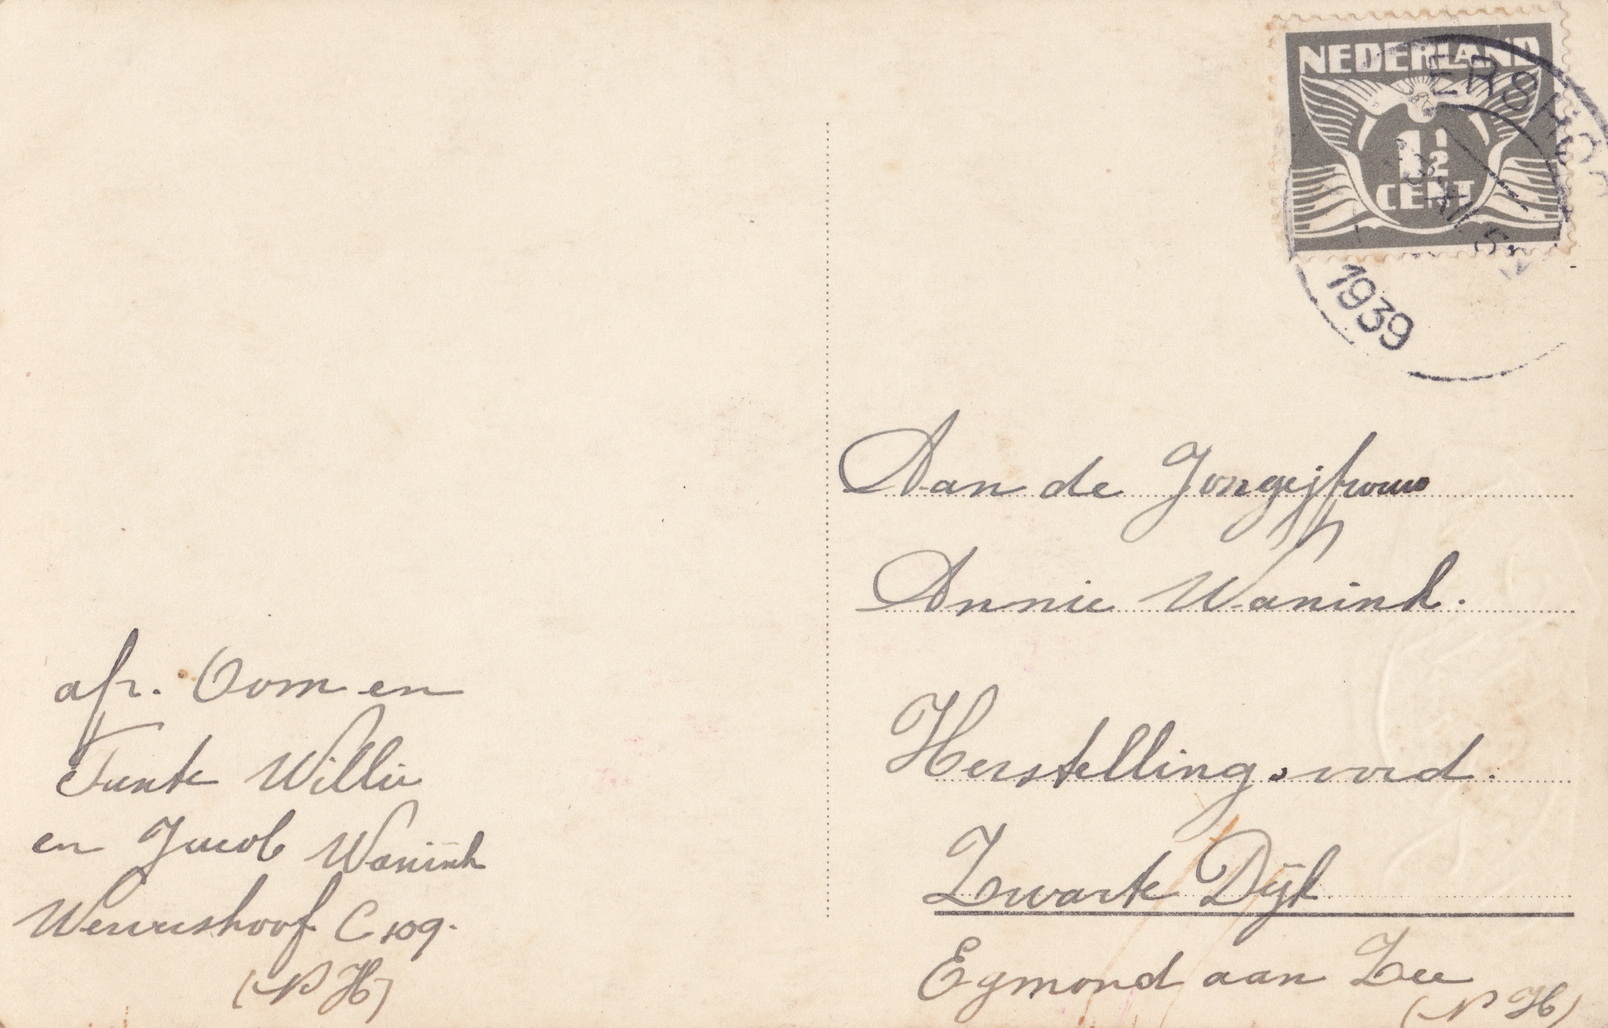 NEDERLAND
1½
CENT
ERSHOO
1939
Aan de Jongejfrouw
Annie Wanink.
Herstellings.oord.
Zwarte Dijk
Egmond aan Zee
(N H)
afz. Oom en
Tante Willie
en Jacob Wanink
Wervershoof C 109.
(N H)